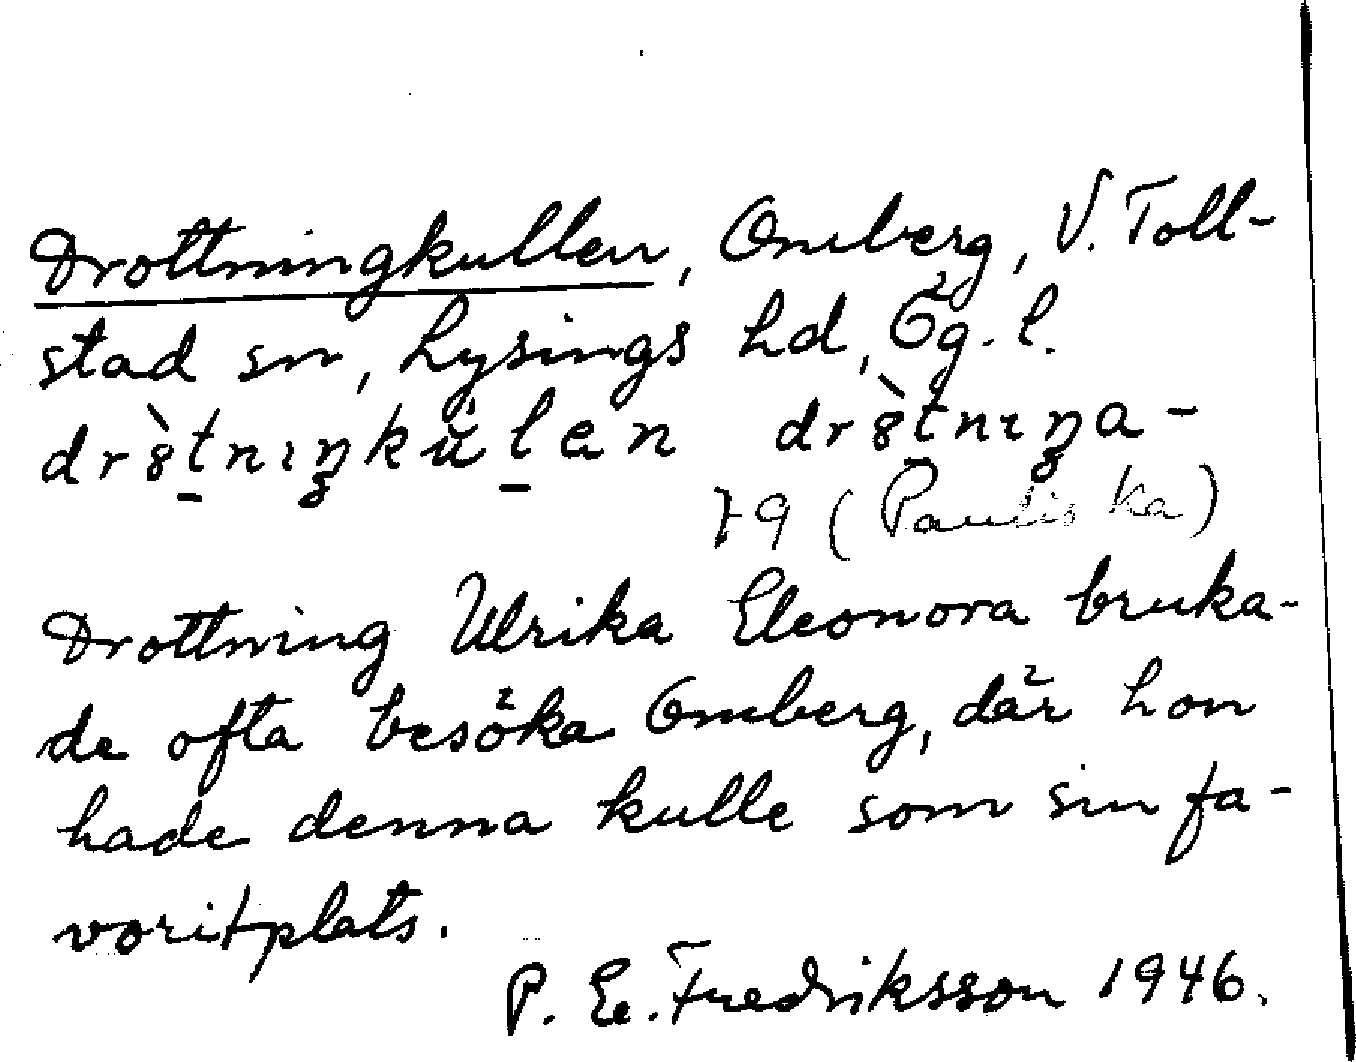 Drottningkullen, Omberg, V. Toll-
stad sn, Lysings hd, Ög. l.
drètnıŋkùlen drètnıŋa-
(Pauliska)
Drottning Ulrika Eleonora bruka-
de ofta besöka Omberg, där hon
hade denna kulle som sin fa-
voritplats.
P. E. Fredriksson 1946.